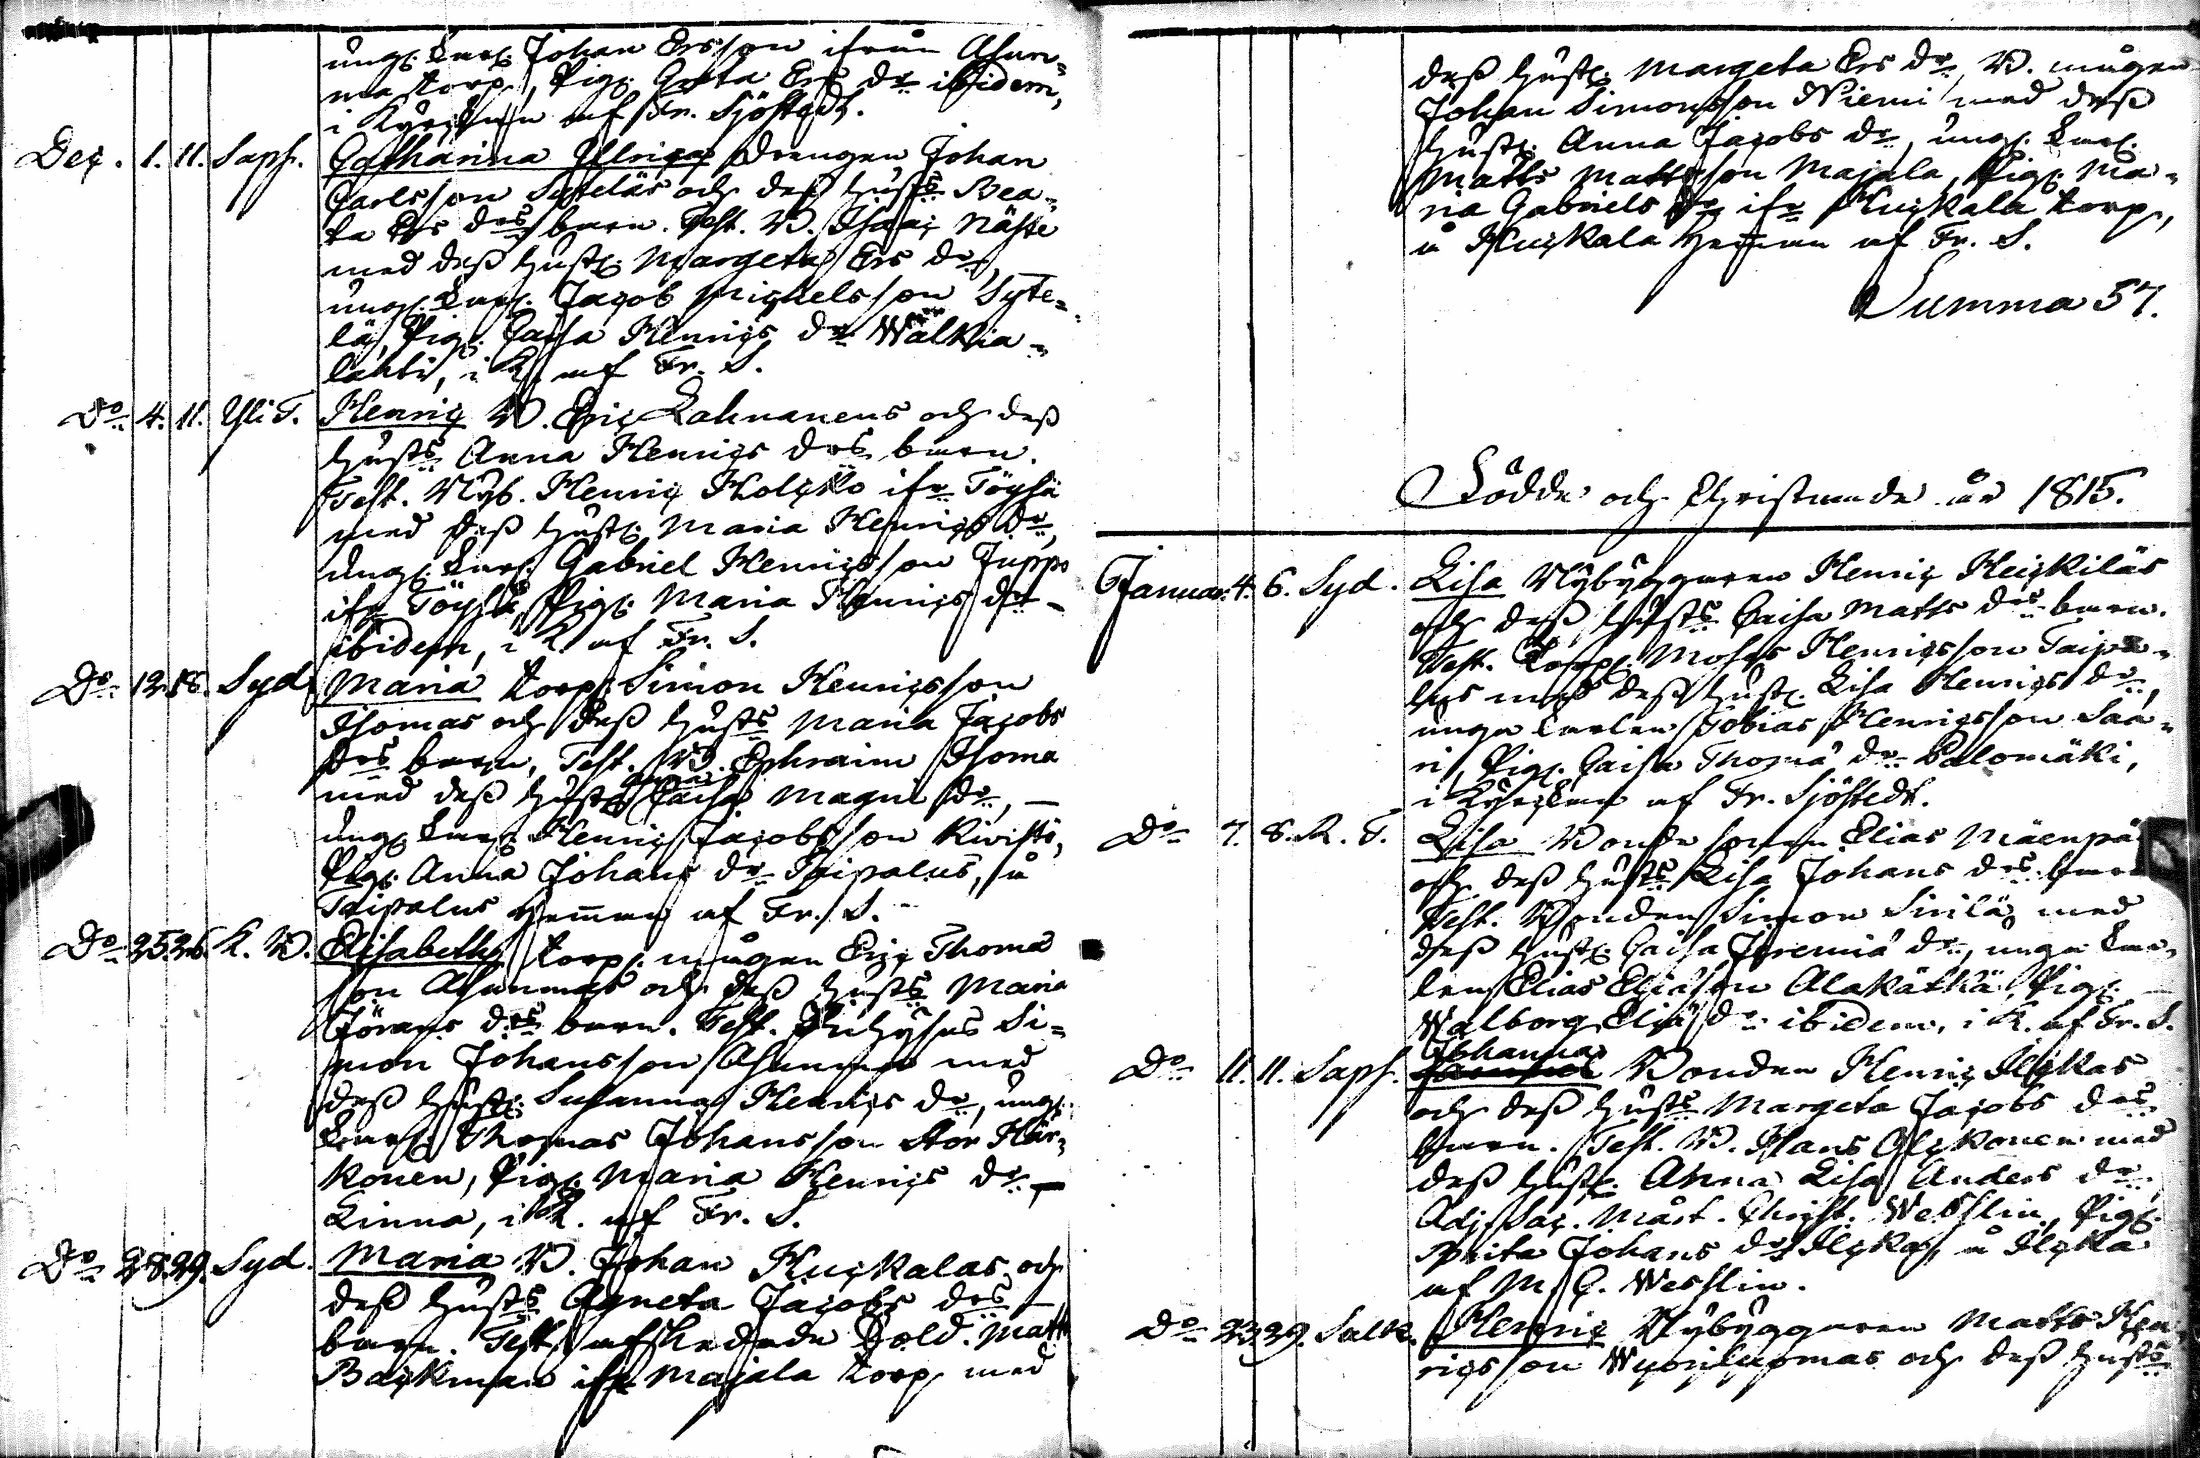 ungk. Karl. Johan Ersson ifrån Asun=
ma torp, Pig. Greta Ers dr ibidem,
i Kyrckan af Fr. Sjöstedt.
Dec. 1. 11. Saps. Catharina Ulrica Drengen Johan
Carlsson Syteläs och dess hustrs Bea=
ta Ers drs barn. Test. B. Isaac Näste
med dess hustr. Margeta Ers dr,
ungk. Karl. Jacob Michelsson Syte=
lä, Pig. Caisa Henrics dr Walkia=
lahti, i K. af Fr. S.
Do 4. 11. Yli T. Henric B. Eric Lahnanens och dess
hustrs Anna Henrics drs barn.
Test. Nyb. Henric Holcko ifr Töysä
med dess hustr. Maria Henrics dr,
ungk. Karl. Gabriel Henricsson Juppo
ifr Töysä, Pig. Maria Henrics dr
ibidem, i K. af Fr. S.
Do 12. 18. Syd. Maria torp. Simon Henricsson
Isomas och dess hustrs Maria Jacobs
drs barn, Test. B. Ephraim Isoma
med dess hustr. Caisa Magni dr,
ungk. Karl. Henric Jacobsson Kivistö,
Pig. Anna Johans dr Taipalus, å
Taipalus Hemman af Fr. S.
Do 25. 26. K. B. Elisabeth torp. mågen Eric Thomæ
son Asunmas och dess hustrs Maria
Görans drs barn. Test. Inhyses Si=
mon Johansson Asunma med
dess hustr. Susanna Henrics dr, ungk.
Karl. Thomas Johansson Stor Här=
konen, Pig. Maria Henrics dr
Linna, i K. af Fr. S.
Do 28. 29. Syd. Maria B. Johan Kuckalas och
dess hustrs Agneta Jacobs drs
barn. Test. afskedade Sold. Matts
Backman ifr Majala torp med
dess hustr. Margeta Ers dr, B. mågen
Johan Simonsson Niemi med dess
hustr. Anna Jacobs dr, ungk. Karl.
Matts Mattsson Majala, Pig. Ma=
ria Gabriels dr ifr Kuckala torp,
å Kuckala Hemman af Fr. S.
Summa 57.
Födde och Christnade år 1815.
Januar. 4. 6. Syd. Lisa Nybyggaren Henric Heickiläs
och dess hustrs Caisa Matts drs barn.
Test. Torp. Moses Henricsson Taipa=
lus med dess hustr. Lisa Henrics dr,
unga Karlen Tobias Henricsson Saa=
ri, Pig. Caisa Thomæ dr Palomäki,
i Kyrckan af Fr. Sjöstedt.
Do 7. 8. K. T. Lisa Bonde sonen Elias Mäenpä
och dess hustrs Lisa Johans drs barn
Test. Bonden Simon Sirilä med
dess hustr. Caisa Jeremiæ dr, unga Kar=
len Elias Eliæson Alakätkä, Pig.
Walborg Eliæ dr ibidem, i K. af Fr. S.
Johanna
Do 11. 11. Saps. Bonden Henric Ilckas
och dess hustrs Margeta Jacobs drs
barn. Test. B. Hans Olckonen med
dess hustr. Anna Lisa Anders dr,
Adj. Sac. Måst. Christ. Wesslin, Pig.
Brita Johans dr Ilcka, å Ilcka
af M. C. Wesslin.
Do 23. 29. Salk. Henric Nybyggaren Matts Hen=
ricsson Wuoriluomas och dess hustrs